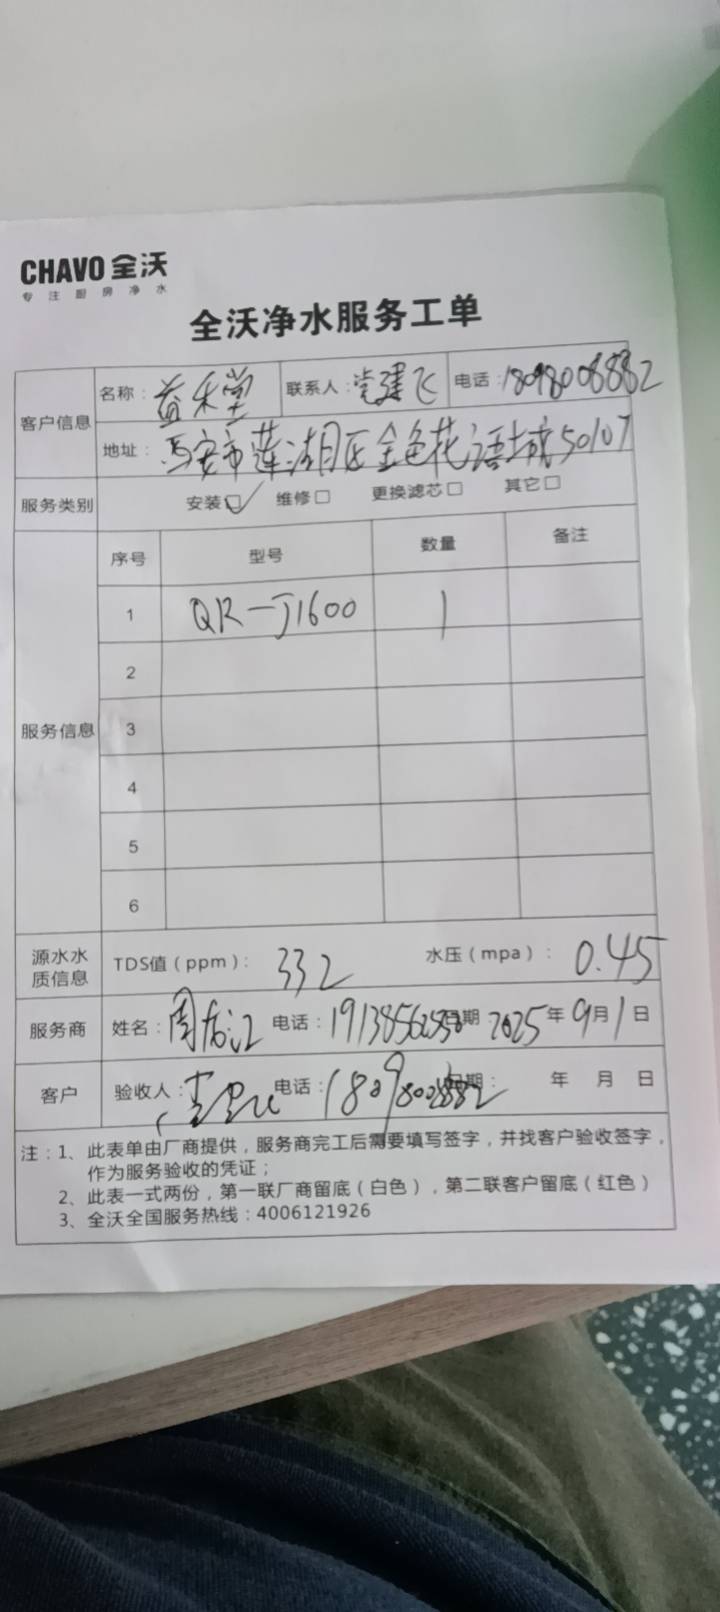 CHAVO 全沃
专注厨房净水
全沃净水服务工单
客户信息 名称：益禾堂 联系人：党建飞 电话：18098008882
地址：西安市莲湖区金色花语城50107
服务类别 安装☑ 维修□ 更换滤芯□ 其它□
服务信息 序号 型号 数量 备注
1 QR-J1600 1
2
3
4
5
6
源水水质信息 TDS值（ppm）：332 水压（mpa）：0.45
服务商 姓名：周 电话： 日期：2025年9月1日
客户 验收人： 电话： 日期： 年 月 日
注：1、此表单由厂商提供，服务商完工后需要填写签字，并找客户验收签字，
作为服务验收的凭证；
2、此表一式两份，第一联厂商留底（白色），第二联客户留底（红色）
3、全沃全国服务热线：4006121926